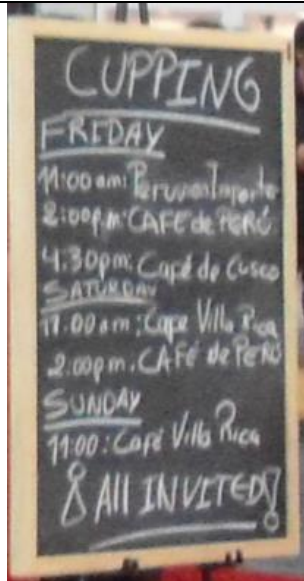 CUPPING
FRIDAY
11:00 am: Peruvian Imports
2:00p.m: CAFÉ de PERÚ
4.30pm: Café de Cusco
SATURDAY
11.00am: Cafe Villa Rica
2.00pm. CAFÉ de PERÚ
SUNDAY
11:00: Café Villa Rica
¡All INVITED!